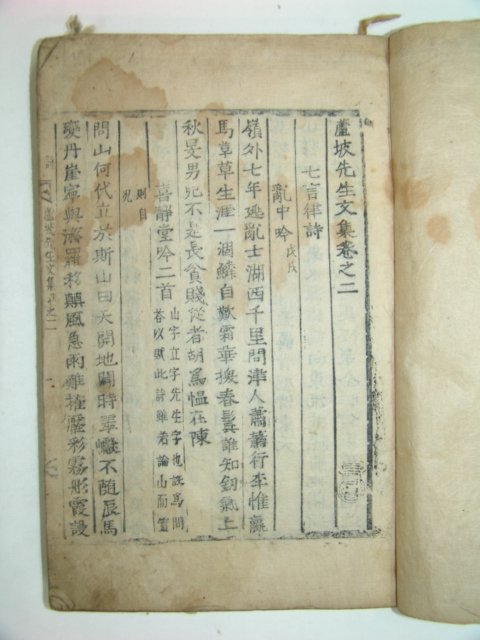 蘆坡先生文集卷之二
七言律詩
亂中吟 戊戌
嶺外七年逃亂士湖西千里問津人蕭蕭行李惟羸
馬草草生涯一涸鱗自歎霜華換春鬂誰知釰氣上
秋旻男兒不是長貧賤從者胡爲慍在陳
喜靜堂吟二首 山字立字先生字也詼爲問
答以賦此詩雖若論山而實
則自
況
問山何代立於斯山曰天開地闢時翠巘不隨辰馬
變丹崖寧與海羅移顚風急雨難摧壓彩霧彤霞謾
先生文集卷之二